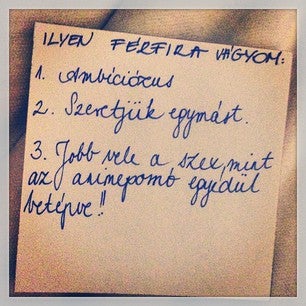 ILYEN FÉRFIRA VÁGYOM:
1. Ambíciózus
2. Szeretjük egymást.
3. Jobb vele a szex, mint
az animepornó egyedül
betépve!!